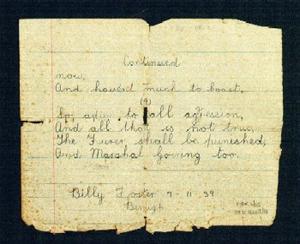 Continued
now,
And haven't much to boast,
(9)
to all agression,
And all that is not true,
The Furer shall be punished,
And Marshal Goering too.
Billy Foster 7-11-39